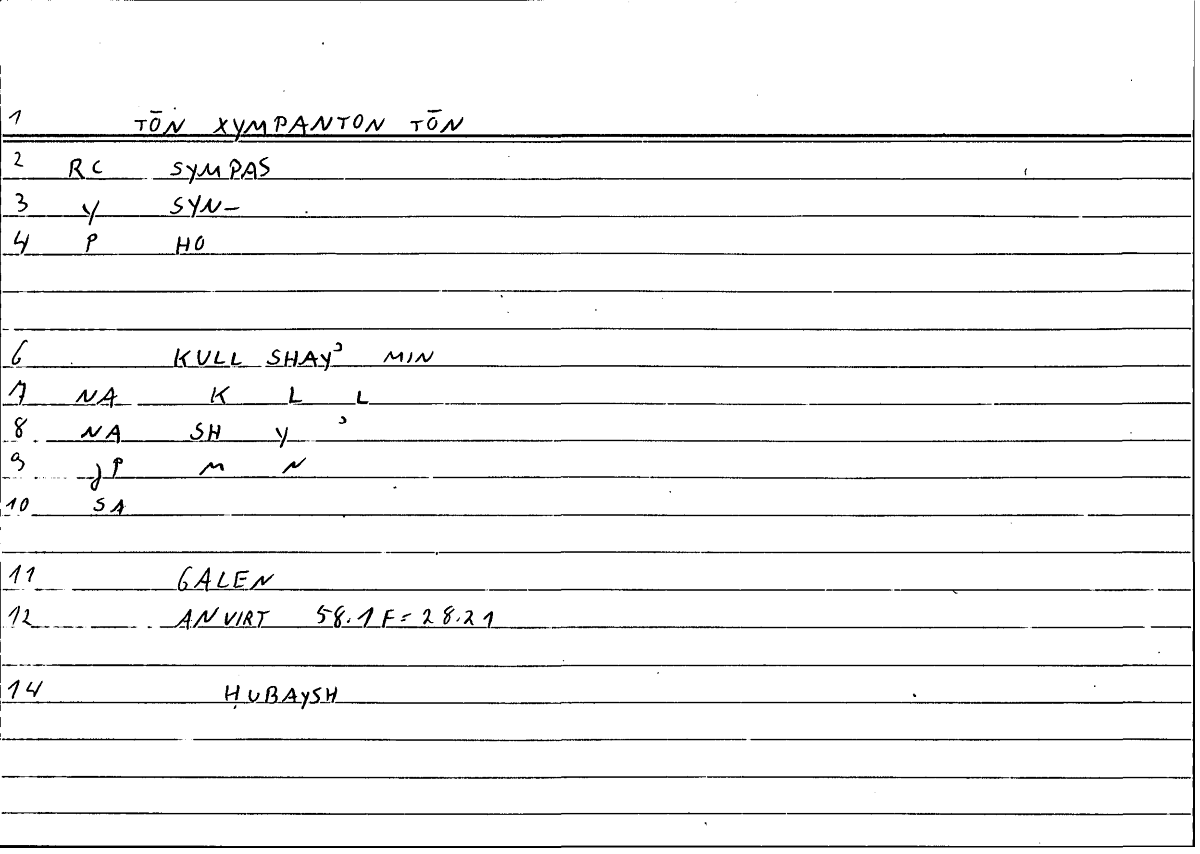 1 TŌN XYMPANTON TŌN
2 RC SYMPAS
3 Y SYN-
4 P HO
6 KULL SHAYʾ MIN
7 NA K L L
8 NA SH Y ʾ
9 JP M N
10 SA
11 GALEN
12 AN VIRT 58.1F=28.21
14 ḤUBAYSH